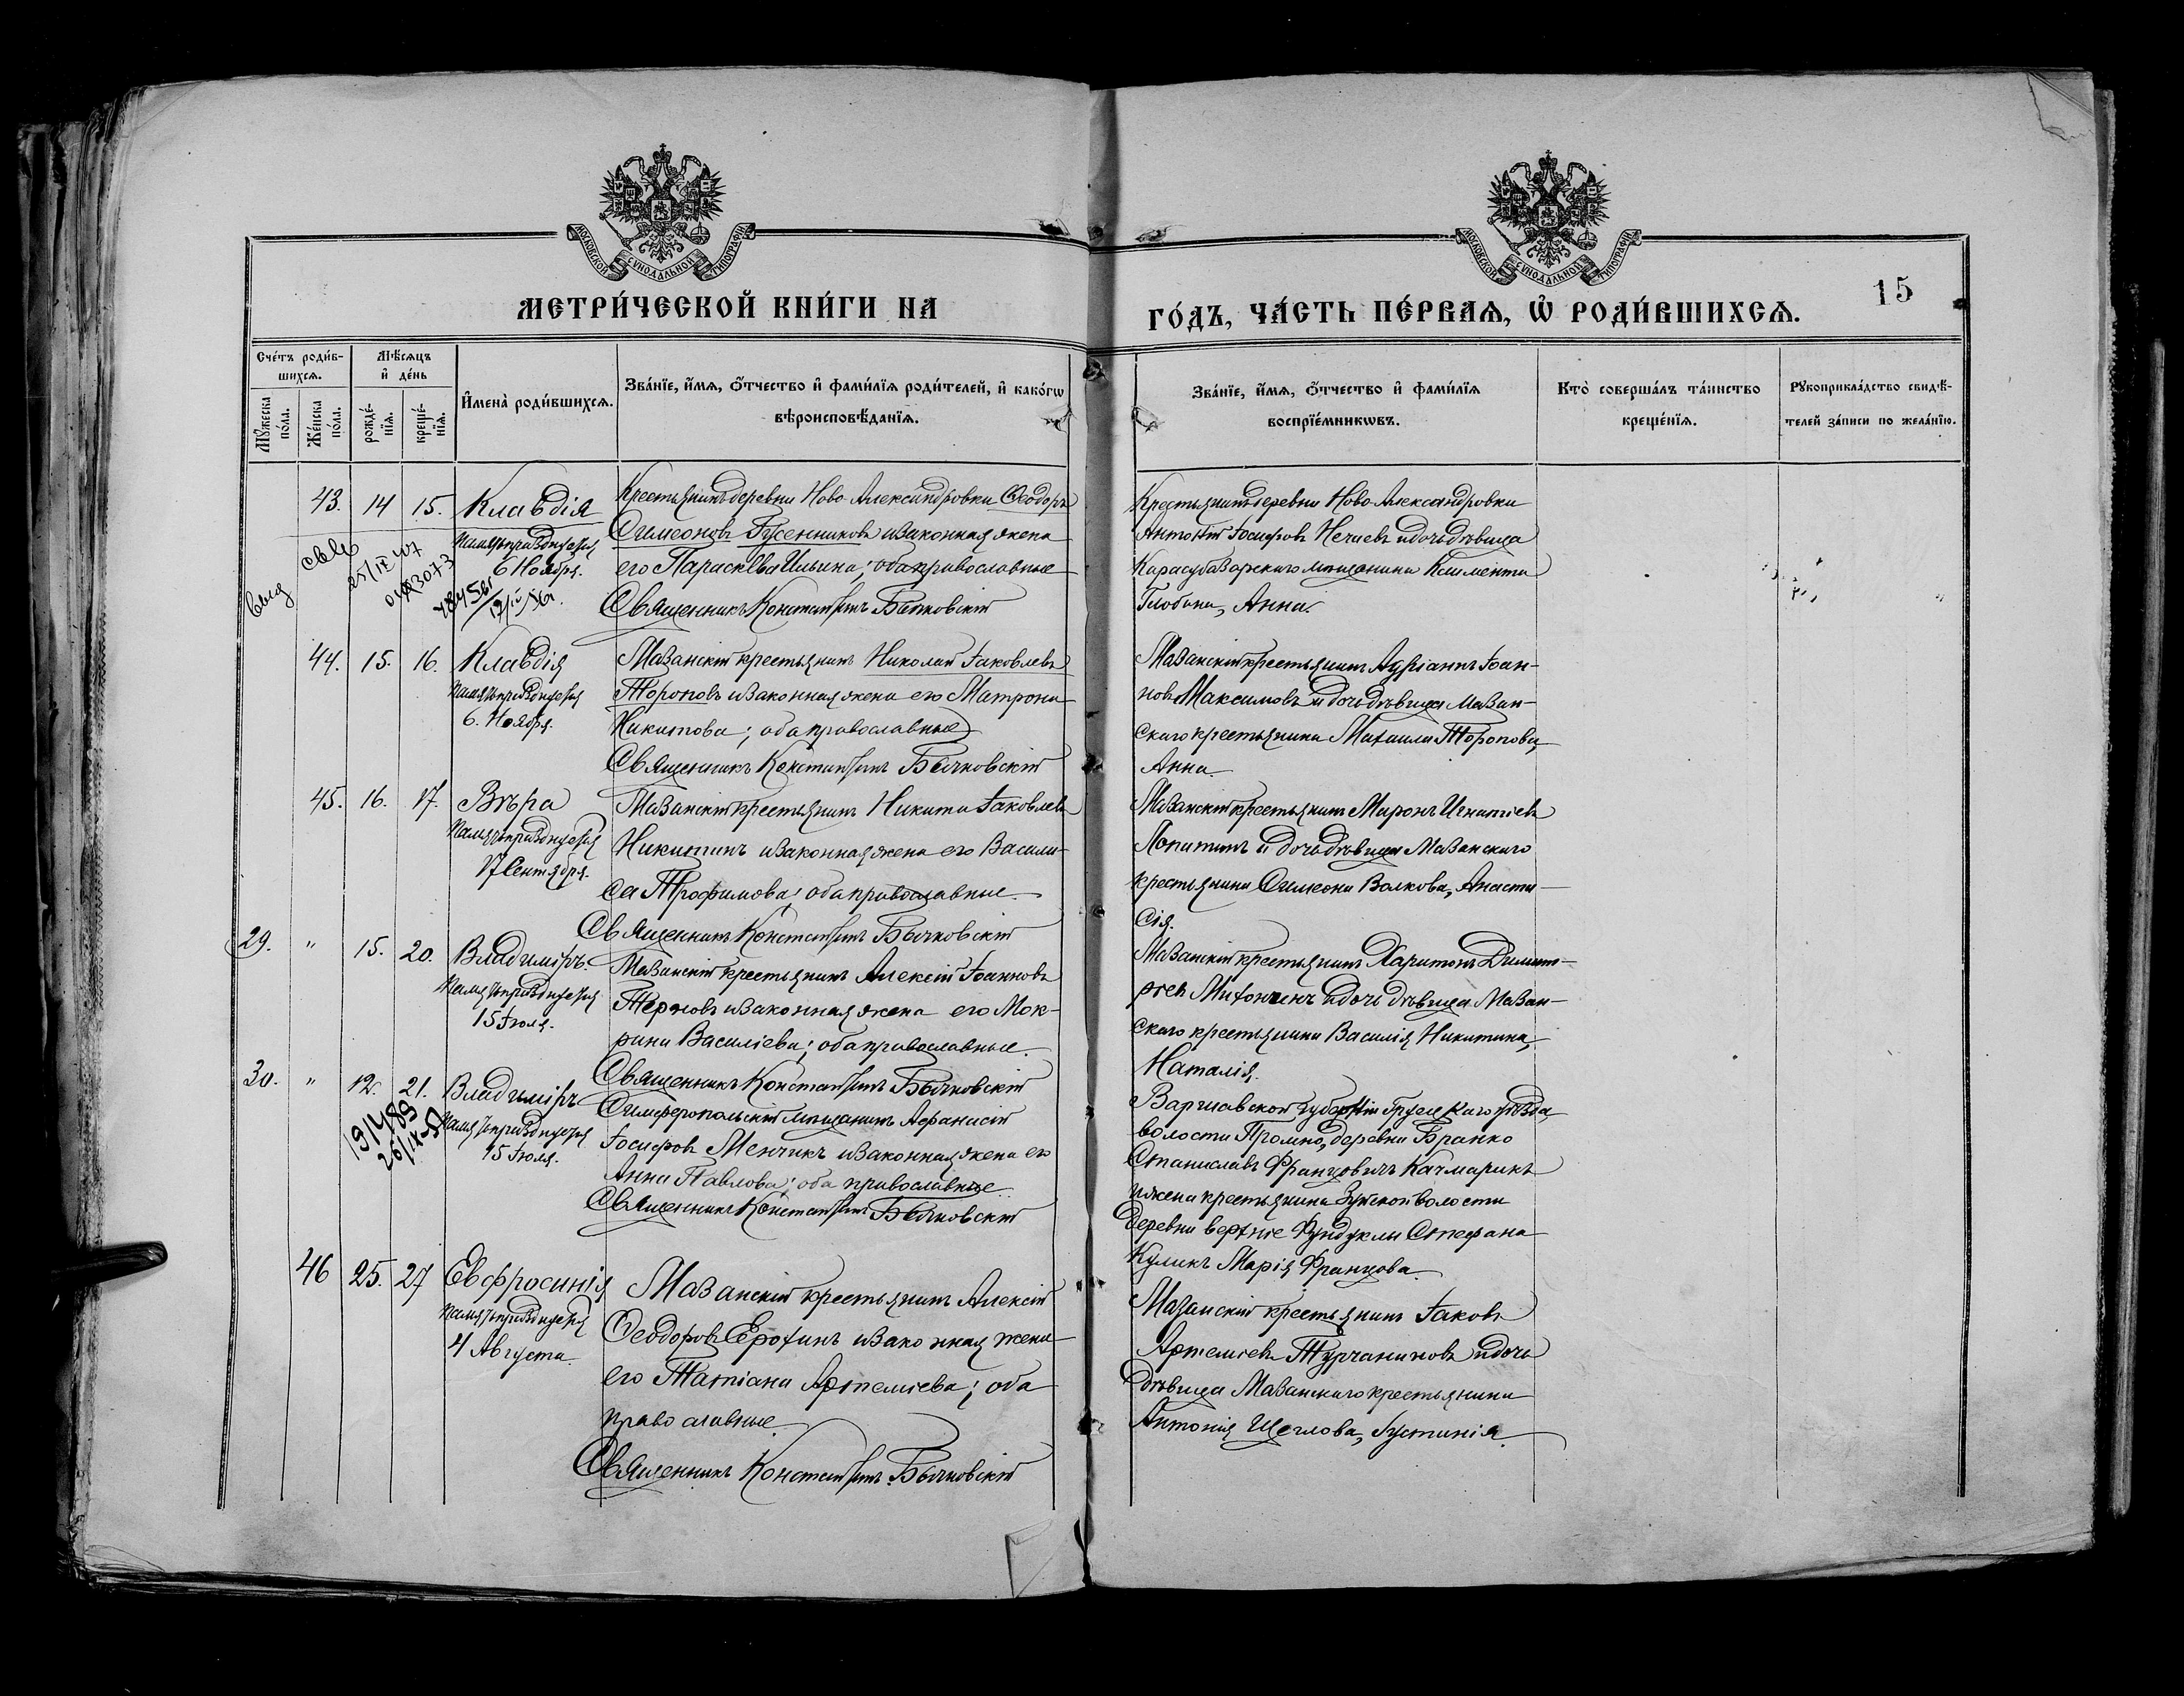 МОСКОВСКОЙ СѴНОДАЛЬНОЙ ТИПОГРАФІИ
МОСКОВСКОЙ СѴНОДАЛЬНОЙ ТИПОГРАФІИ
МЕТРИ́ЧЕСКОЙ КНИ́ГИ НА
ГО́ДЪ, ЧА́СТЬ ПЕ́РВАѦ, Ѽ РОДИ́ВШИХСѦ.
15
Сче́тъ роди́в-
шихсѧ.
Мѣ́сѧцъ
и҆ де́нь
Мꙋ́жеска
по́ла.
Же́нска
по́ла.
рожде́-
нїѧ.
креще́-
нїѧ.
И҆мена̀ роди́вшихсѧ.
Зва́нїе, и҆́мѧ, ѻ҆́тчество и҆ фами́лїѧ роди́телей, и҆ како́гѡ
вѣроисповѣ́данїѧ.
Зва́нїе, и҆́мѧ, ѻ҆́тчество и҆ фами́лїѧ
воспрїе́мникѡвъ.
Кто̀ соверша́лъ та́инство
креще́нїѧ.
Рꙋкоприкла́дство свидѣ́-
телей за́писи по жела́нїю.
43. 14 15. Клавдія
памятьпразднуется
6 Ноября.
Крестьянинъ деревни Ново-Александровки Ѳеодоръ
Симеоновъ Гусенниковъ и законная жена
его Параскева Ильина; оба православные
Священникъ Константинъ Бычковскій
Крестьянинъ деревни Ново-Александровки
Антоній Іосифовъ Нечаевъ и дочь дѣвица
Карасубазарскаго мѣщанина Климента
Глобина, Анна.
44. 15. 16. Клавдія
память празднуется
6. Ноября.
Мазанскій крестьянинъ Николай Іаковлевъ
Тороповъ и законная жена его Матрона
Никитова; оба православные
Священникъ Константинъ Бычковскій
Мазанскій крестьянинъ Адріанъ Іоан-
новъ Максимовъ и дочь дѣвица Мазан-
скаго крестьянина Михаила Торопова,
Анна.
45. 16. 17. Вѣра
память празднуется
17 Сентября.
Мазанскій крестьянинъ Никита Іаковлевъ
Никитинъ и законная жена его Васили-
са Трофимова; оба православные.
Священникъ Константинъ Бычковскій
Мазанскій крестьянинъ Миронъ Игнатіевъ
Лопатинъ и дочь дѣвица Мазанскаго
крестьянина Симеона Волкова, Анаста-
сія.
29. " 15. 20. Владиміръ.
память празднуется
15 Іюля.
Мазанскій крестьянинъ Алексій Іоанновъ
Терновъ и законная жена его Мок-
рина Василіева; оба православные.
Священникъ Константинъ Бычковскій
Мазанскій крестьянинъ Харитонъ Димит-
ріевъ Митонинъ и дочь дѣвица Мазан-
скаго крестьянина Василія Никитина,
Наталія.
30. " 12. 21. Владиміръ
память празднуется
15 Іюля.
Симферопольскій мѣщанинъ Аѳанасій
Іосифовъ Менчикъ и законная жена его
Анна Павлова; оба православные
Священникъ Константинъ Бычковскій
Варшавской губерніи Груецкаго уѣзда,
волости Промно, деревни Бранко
Станиславъ Францовичъ Качмарикъ
и жена крестьянина Зуйской волости
деревни верхніе Фундуклы Стефана
Куликъ Марія Францова.
46 25. 27 Евфросинія
память празднуется
4 Августа.
Мазанскій крестьянинъ Алексій
Ѳеодоровъ Ерохинъ и законная жена
его Татіана Артеміева; оба
православные.
Священникъ Константинъ Бычковскій
Мазанскій крестьянинъ Іаковъ
Артеміевъ Турчаниновъ и дочь
дѣвица Мазанскаго крестьянина
Антонія Щеглова, Іустинія.